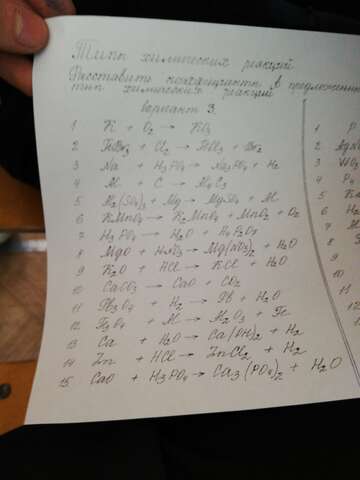 Типы химических реакций
Расставить коэффициенты в предложенных
тип химических реакций
вариант 3.
1 K + O₂ → KO₂
2 FeBr₃ + Cl₂ → FeCl₃ + Br₂
3 Na + H₃PO₄ → Na₃PO₄ + H₂
4 Al + C → Al₄C₃
5 Al₂(SO₄)₃ + Mg → MgSO₄ + Al
6 KMnO₄ → K₂MnO₄ + MnO₂ + O₂
7 H₃PO₄ → H₂O + H₄P₂O₇
8 MgO + HNO₃ → Mg(NO₃)₂ + H₂O
9 K₂O + HCl → KCl + H₂O
10 CaCO₃ → CaO + CO₂
11 Pb₃O₄ + H₂ → Pb + H₂O
12 Fe₃O₄ + Al → Al₂O₃ + Fe
13 Ca + H₂O → Ca(OH)₂ + H₂
14 Zn + HCl → ZnCl₂ + H₂
15 CaO + H₃PO₄ → Ca₃(PO₄)₂ + H₂O
1
2
3
4
5
6
7
8
9
10
11
12